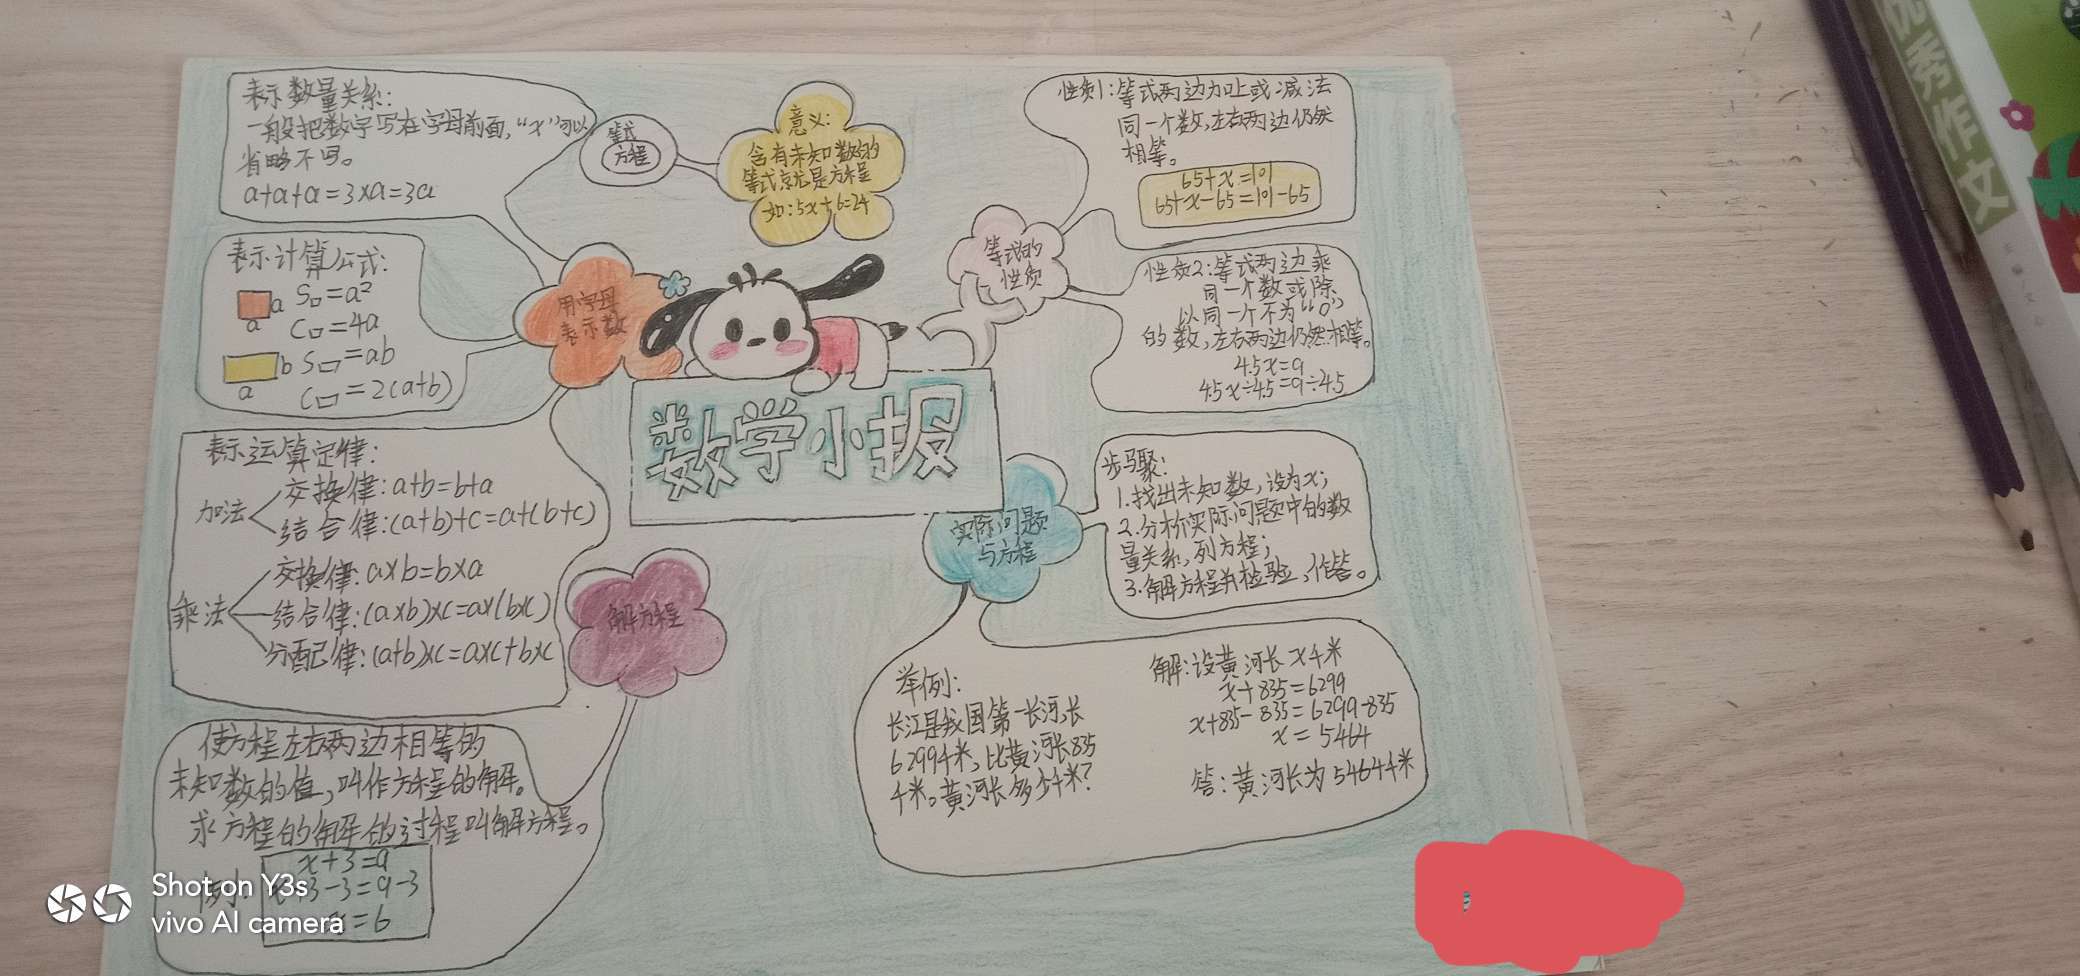 表示数量关系:
一般把数字写在字母前面,“x”可以
省略不写。
a+a+a=3×a=3a
表示计算公式:
a S□=a²
a C□=4a
b S▭=ab
a C▭=2(a+b)
表示运算定律:
加法
交换律:a+b=b+a
结合律:(a+b)+c=a+(b+c)
乘法
交换律:a×b=b×a
结合律:(a×b)×c=a×(b×c)
分配律:(a+b)×c=a×c+b×c
使方程左右两边相等的
未知数的值,叫作方程的解。
求方程的解的过程叫解方程。
例:
x+3=9
x+3-3=9-3
x=6
等式
方程
意义:
含有未知数的
等式就是方程
如:5x+6=24
用字母
表示数
数学小报
解方程
等式的
性质
性质1:等式两边加上或减法
同一个数,左右两边仍然
相等。
65+x=101
65+x-65=101-65
性质2:等式两边乘
同一个数或除
以同一个不为“0”
的数,左右两边仍然相等。
4.5x=9
4.5x÷4.5=9÷4.5
实际问题
与方程
步骤:
1.找出未知数,设为x;
2.分析实际问题中的数
量关系,列方程;
3.解方程并检验,作答。
举例:
长江是我国第一长河,长
6299千米,比黄河长835
千米。黄河长多少千米?
解:设黄河长x千米
x+835=6299
x+835-835=6299-835
x=5464
答:黄河长为5464千米
优秀作文
Shot on Y3s
vivo AI camera